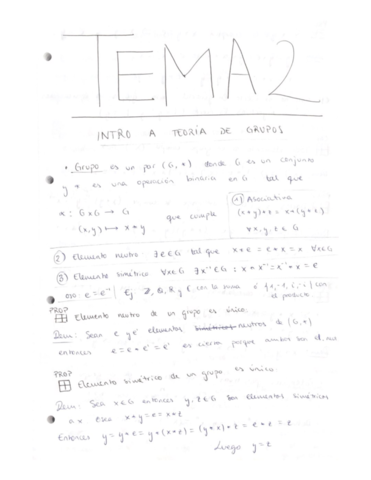 TEMA 2
INTRO A TEORÍA DE GRUPOS
• Grupo es un par (G, *) donde G es un conjunto
y * es una operación binaria en G tal que
* : G×G → G que cumple
(x,y) ↦ x*y
1) Asociativa
(x*y)*z = x*(y*z)
∀x,y,z ∈ G
2) Elemento neutro ∃e∈G tal que x*e = e*x = x ∀x∈G
3) Elemento simétrico ∀x∈G ∃x⁻¹∈G : x*x⁻¹ = x⁻¹*x = e
e = e⁻¹ Ej ℤ, ℚ, ℝ y ℂ, con la suma ó {1,-1,i,-i} con
el producto.
PROP
Elemento neutro de un grupo es único.
Dem: Sean e y e' elementos neutros de (G,*)
entonces e = e*e' = e' es cierto porque ambos son el. neut
PROP
Elemento simétrico de un grupo es único.
Dem: Sea x∈G entonces y, z∈G son elementos simétricos
a x osea x*y = e = x*z
Entonces y = y*e = y*(x*z) = (y*x)*z = e*z = z
Luego y = z